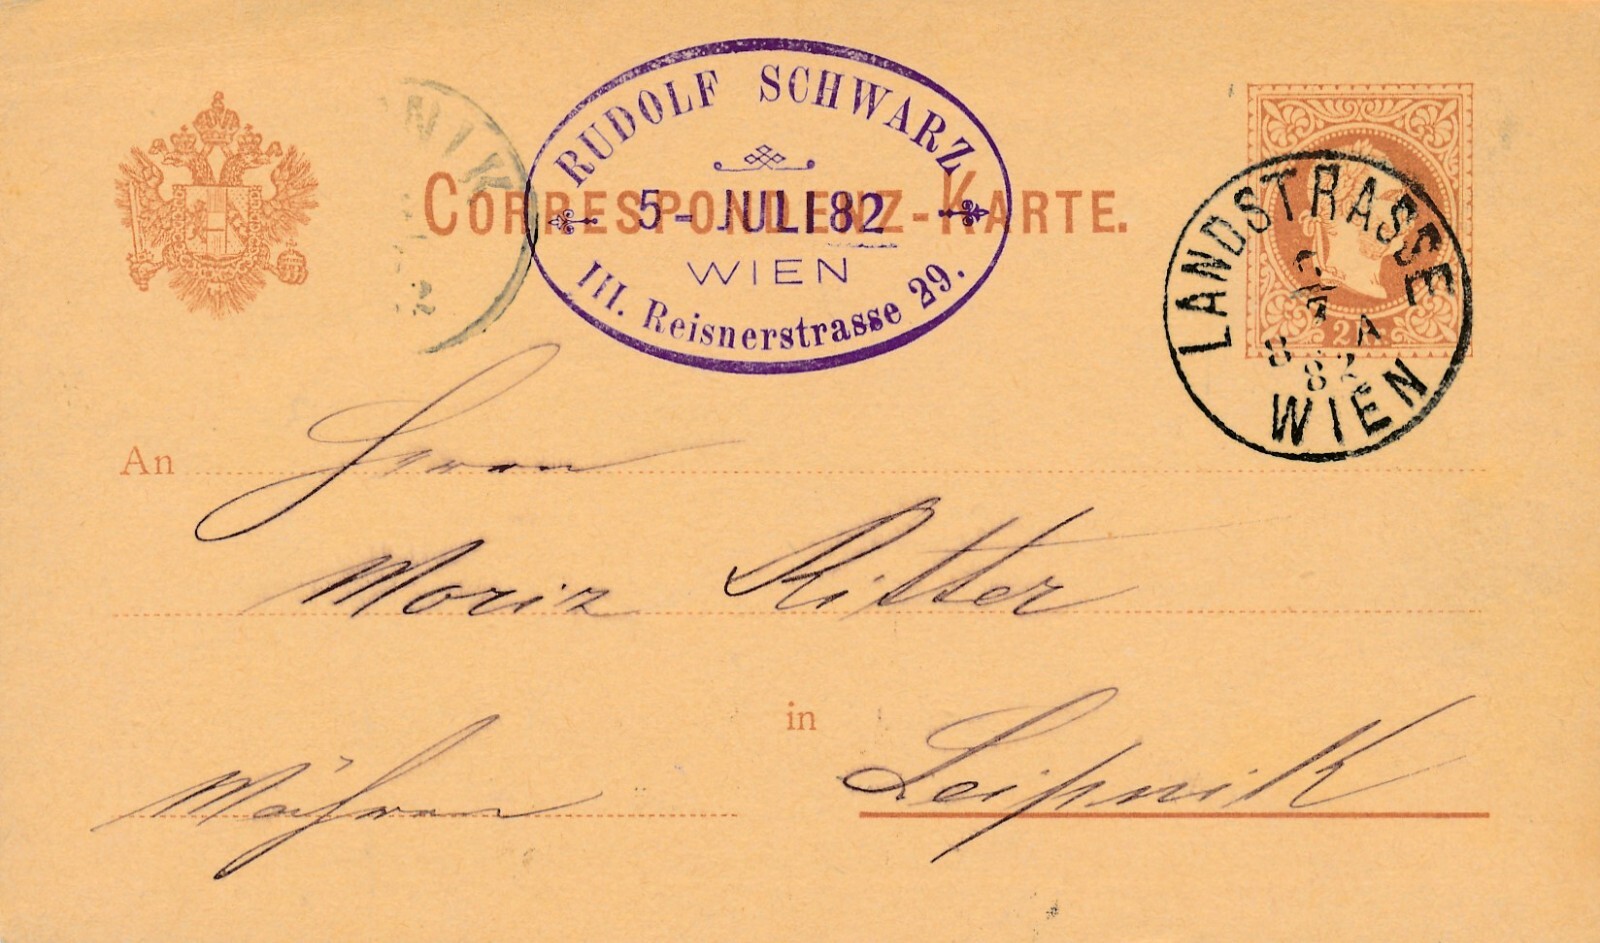 RUDOLF SCHWARZ
5- JULI 82
WIEN
III. Reisnerstrasse 29.
NIK
CORRESPONDENZ-KARTE.
2 Kr.
LANDSTRASSE
A
82
WIEN
An Herrn
Moriz Ritter
in Leipnik
Mähren